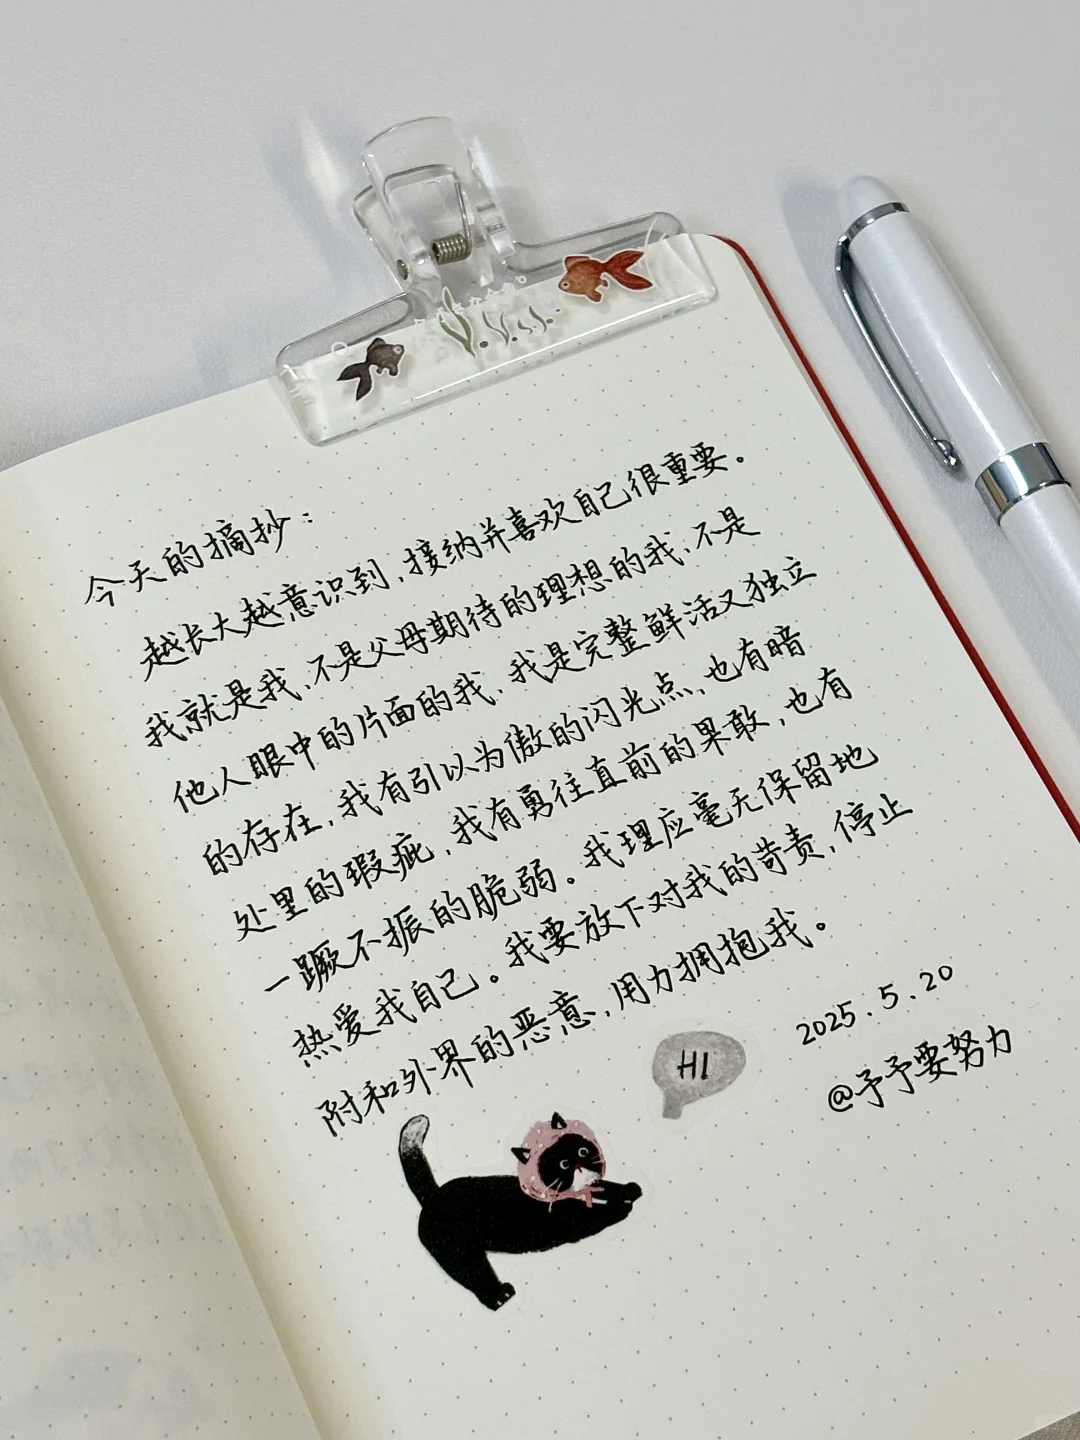 今天的摘抄：
越长大越意识到，接纳并喜欢自己很重要。
我就是我，不是父母期待的理想的我，不是
他人眼中的片面的我，我是完整鲜活又独立
的存在，我有引以为傲的闪光点，也有暗
处里的瑕疵，我有勇往直前的果敢，也有
一蹶不振的脆弱。我理应毫无保留地
热爱我自己。我要放下对我的苛责，停止
附和外界的恶意，用力拥抱我。
2025.5.20
@予予要努力
HI